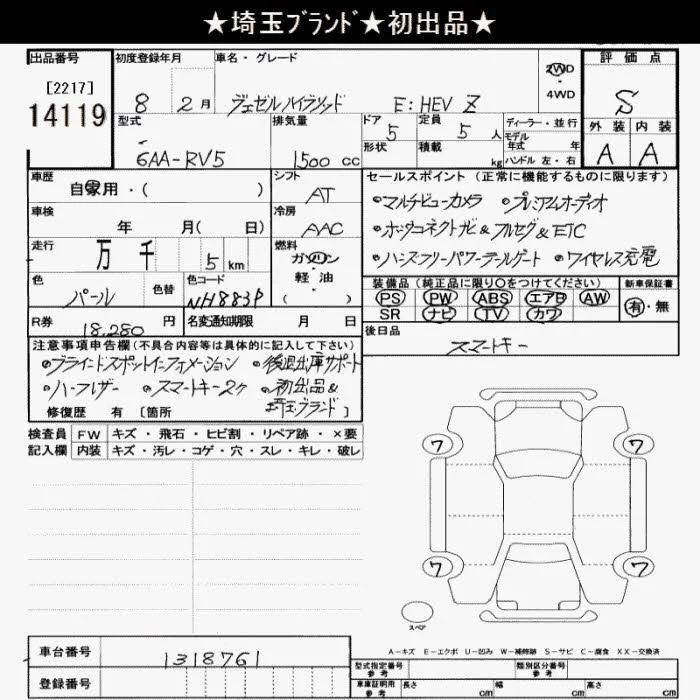 ★埼玉ﾌﾞﾗﾝﾄﾞ★初出品★
出品番号
[2217]
14119
初度登録年月
8 2月
車名・グレード
ヴェゼルハイブリッド E:HEV Z
2WD
4WD
評価点
S
外装 内装
A A
型式
6AA-RV5
排気量
1500 cc
ドア 5
形状
定員 5 人
積載 kg
ディーラー・並行
モデル年式 年
ハンドル 左・右
車歴
自家用・( )
シフト
AT
車検
年 月( 日)
冷房
AAC
走行
万 千 5 km
燃料
ガソリン
・
軽油
( )
色
パール
色替
色コード
NH883P
R券
18,280 円
名変通知期限 月 日
セールスポイント（正常に機能するものに限ります）
•マルチビューカメラ •プレミアムオーディオ
•ホンダコネクトナビ&フルセグ&ETC
•ハンズフリーパワーテールゲート •ワイヤレス充電
装備品（純正品に限り○をつけてください）
PS PW ABS エアB AW
SR ナビ TV カワ
新車保証書
有・無
後日品
スマートキー
注意事項申告欄(不具合内容等は具体的に記入して下さい)
•ブラインドスポットインフォメーション •後退出庫サポート
•ハーフレザー •スマートキー2ケ •初出品&
埼玉ブランド
修復歴 有 [箇所 ]
検査員記入欄
FW キズ・飛石・ヒビ割・リペア跡・×要
内装 キズ・汚レ・コゲ・穴・スレ・キレ・破レ
7 7
7 7
スペア
A－キズ E－エクボ U－凹み W－補修跡 S－サビ C－腐食 XX－交換済
車台番号
1318761
登録番号
型式指定番号
参考
類別区分番号
参考
車庫証明用
参考
長さ cm 幅 cm 高さ cm